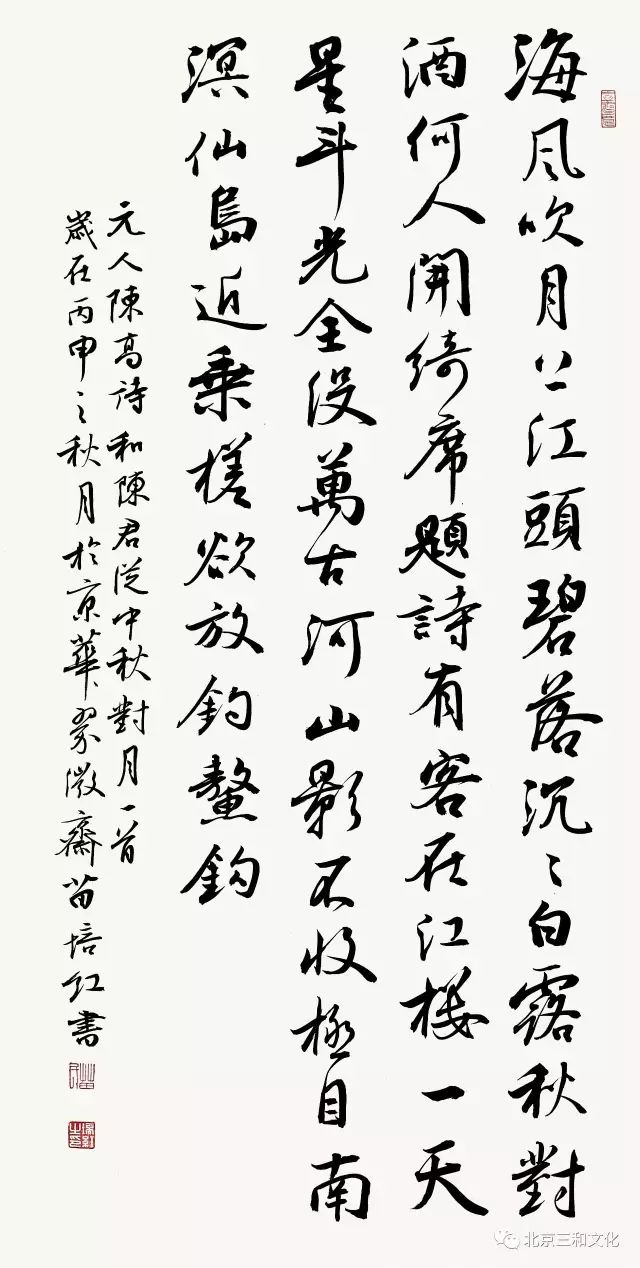 海風吹月上江頭碧落沉〻白露秋對
酒何人開綺席題詩有客在江樓一天
星斗光全沒萬古河山影不收極目南
溟仙島近乘槎欲放釣鰲鈎
元人陳高詩和陳君從中秋對月一首
歲在丙申之秋月於京華翠微齋苗培紅書
北京三和文化